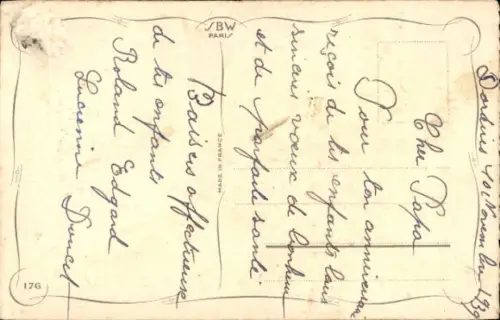 SBW
PARIS
MADE IN FRANCE
176
10 Novembre 1939
Cher Papa
Pour ton anniversaire
reçois de tes enfants leurs
sincères vœux de bonheur
et de parfaite santé.
Baisers affectueux
de tes enfants
Roland Edgard
Lucienne